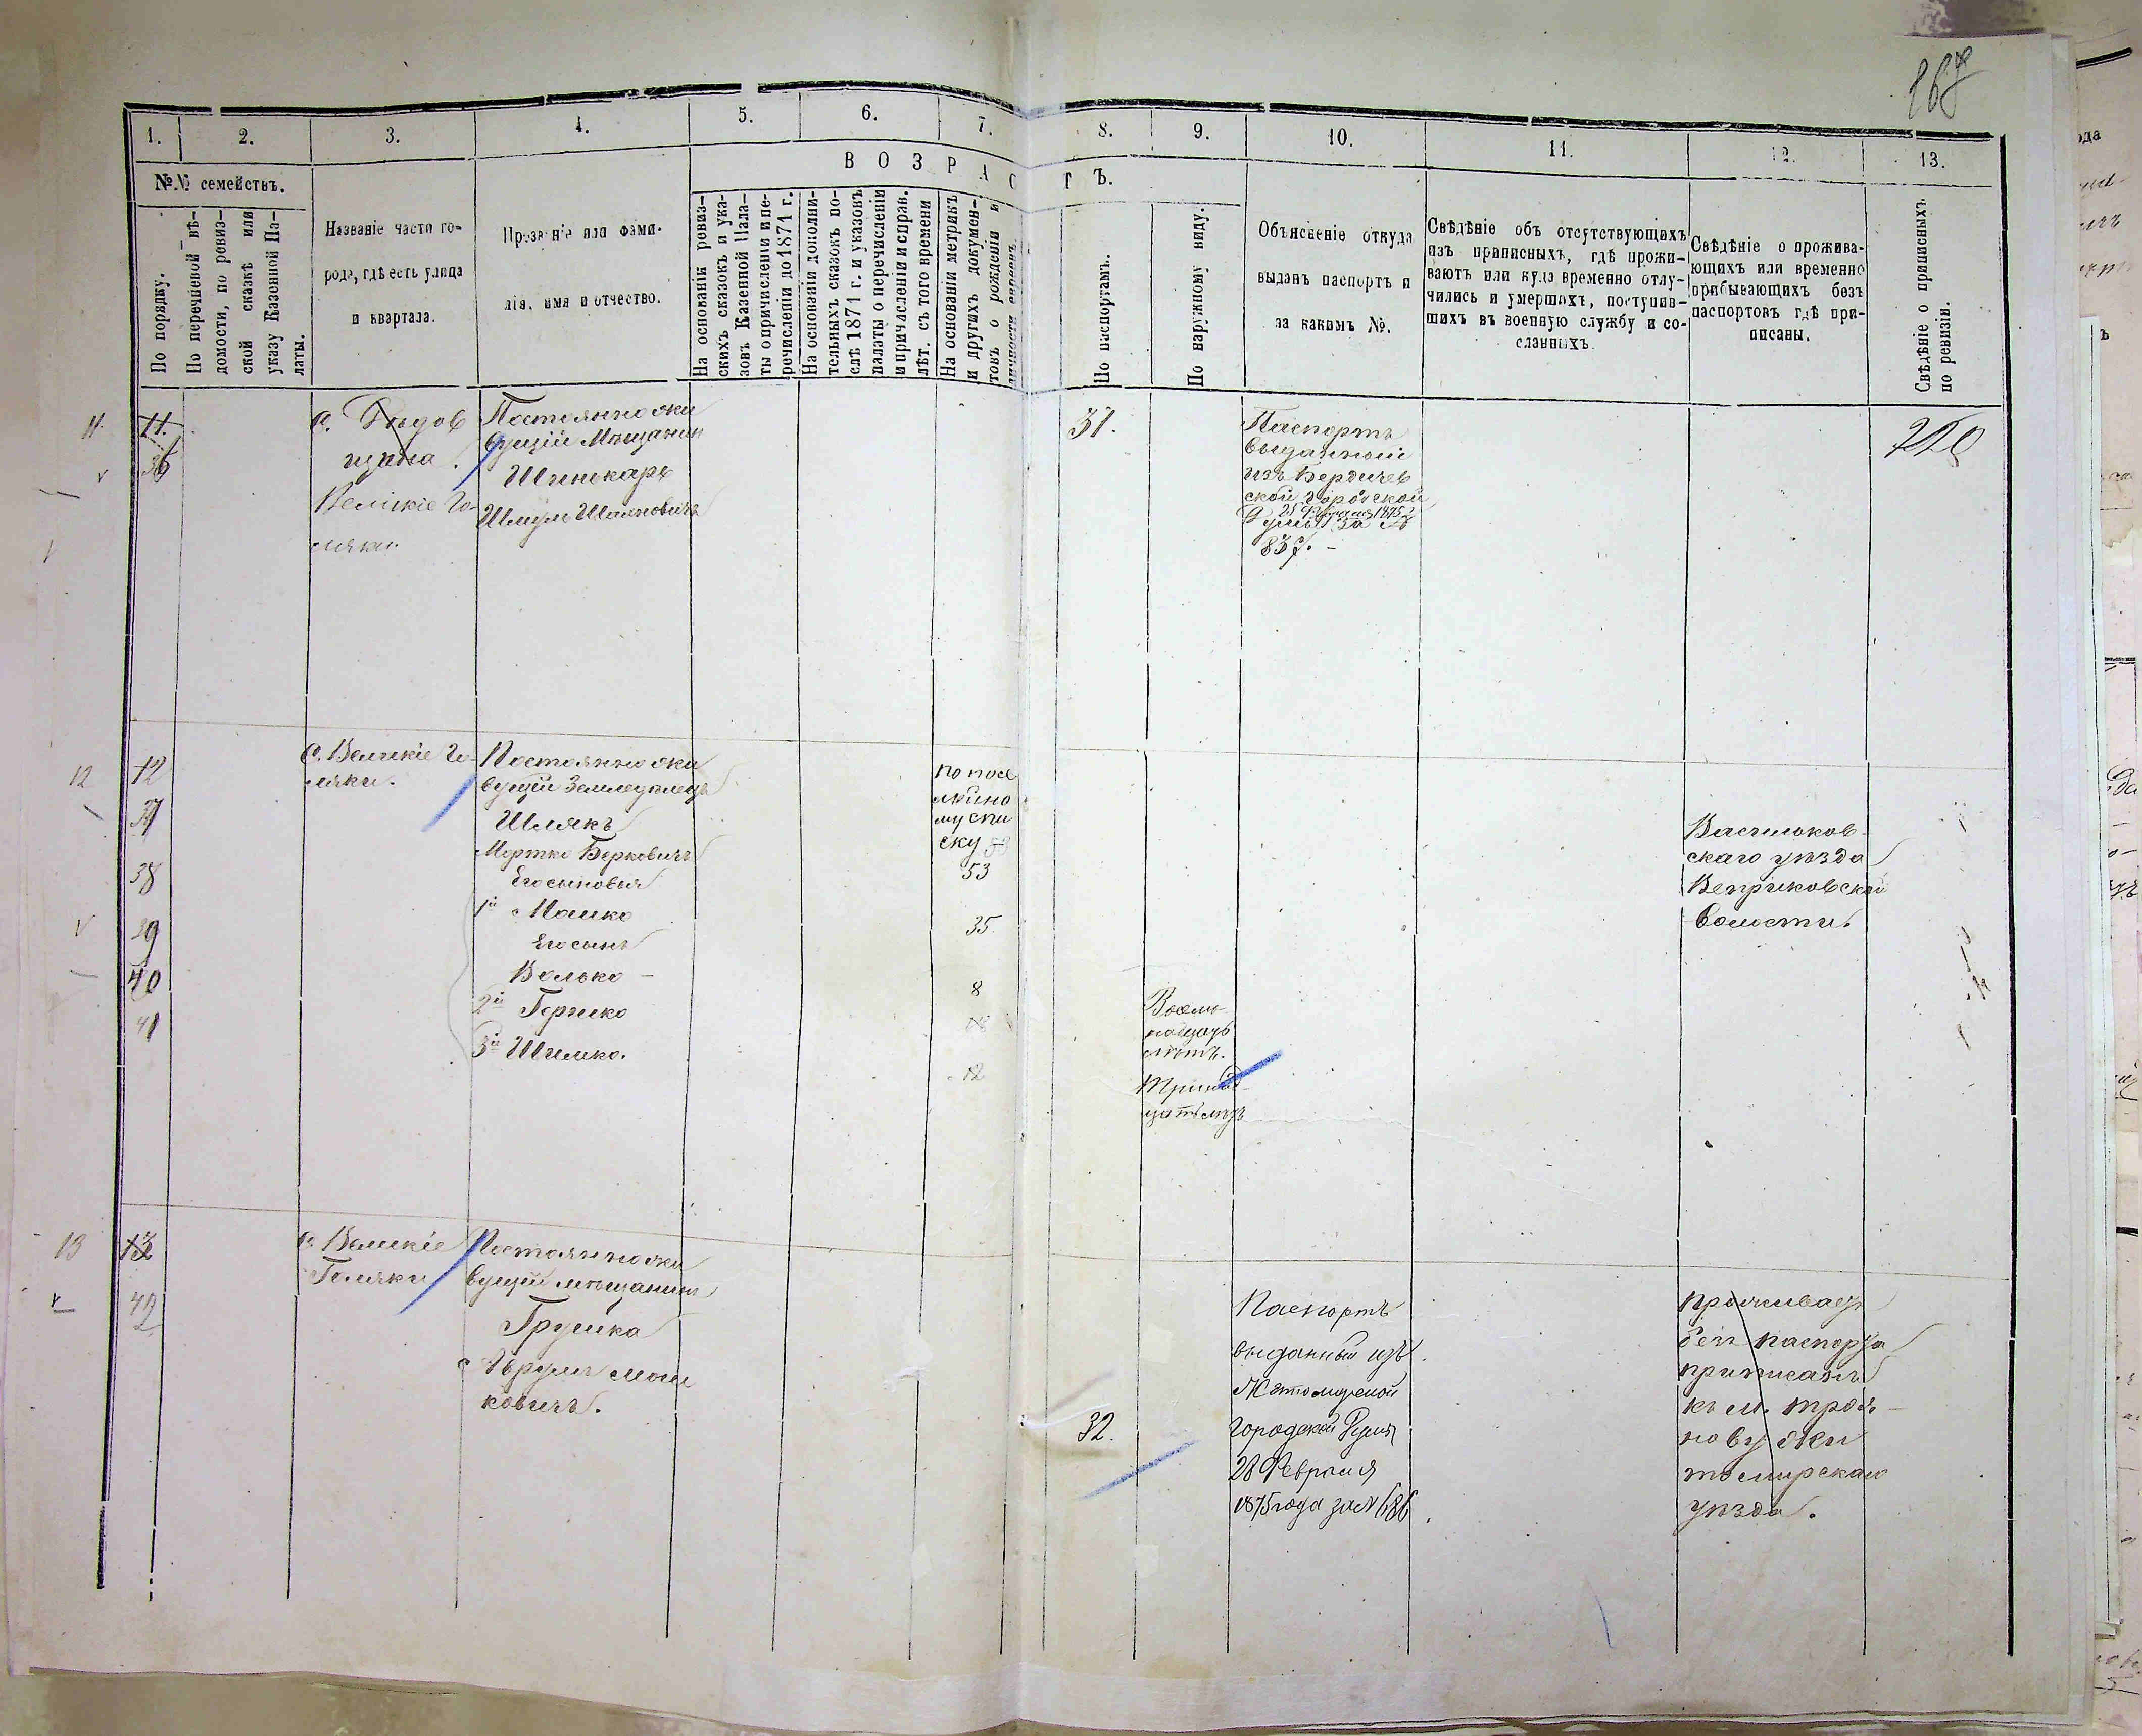 167
1. 2. 3. 4. 5. 6. 7. 8. 9. 10. 11. 12. 13.
№№ семействъ.
ВОЗРАСТЪ.
По порядку.
По перечневой вѣ-
домости, по ревиз-
ской сказкѣ или
указу Казенной Па-
латы.
Названіе части го-
рода, гдѣ есть улица
и квартала.
Прозваніе или фами-
лія, имя и отчество.
На основаніи ревиз-
скихъ сказокъ и ука-
зовъ Казенной Пала-
ты о причисленіи и пе-
речисленіи до 1871 г.
На основаніи дополни-
тельныхъ сказокъ по-
слѣ 1871 г. и указовъ
палаты о перечисленіи
и причисленіи и справ.
лѣт. съ того времени
На основаніи метрикъ
и другихъ докумен-
товъ о рожденіи и
личности евреевъ.
По паспортамъ.
По наружному виду.
Объясненіе откуда
выданъ паспортъ и
за какимъ №.
Свѣдѣніе объ отсутствующихъ
изъ приписныхъ, гдѣ прожи-
ваютъ или куда временно отлу-
чились и умершихъ, поступив-
шихъ въ военную службу и со-
сланныхъ.
Свѣдѣніе о прожива-
ющихъ или временно
прибывающихъ безъ
паспортовъ гдѣ при-
писаны.
Свѣдѣніе о приписныхъ
по ревизіи.
11 11.
36
с.
Великіе Го-
ляки.
Постоянно жи
вущій Мѣщанин
Шинкарь
Шмуль
31.
Паспортъ
выданный
изъ Бердичев
ской городской
25 Февраля 1875 г
Думы за №
837. –
12 12
37
38
39
40
41
с. Великіе Го-
ляки.
Постоянно жи
вущій Земледѣлецъ
Шлякъ
Мортко Берковичъ
Его сыновья
1й Мошко
Его сынъ
Волько –
2й Гершко
3й Шлико.
по посе
мейно
му спи
ску
53
35.
8
18
12
Восем
надцать
лѣтъ.
Тринад
цать лѣтъ
Васильков-
скаго уѣзда
Веприковской
волости.
13 13
42
с. Великіе
Голяки
Постоянно жи
вущій мѣщанинъ
Грушка
Аврумъ Мош
ковичъ.
32.
Паспортъ
выданный изъ
Житомирской
городской Думы
28 Февраля
1875 года за № 686
проживаетъ
безъ паспорта
приписанъ
къ м. Троя-
нову Жи
томирскаго
уѣзда.